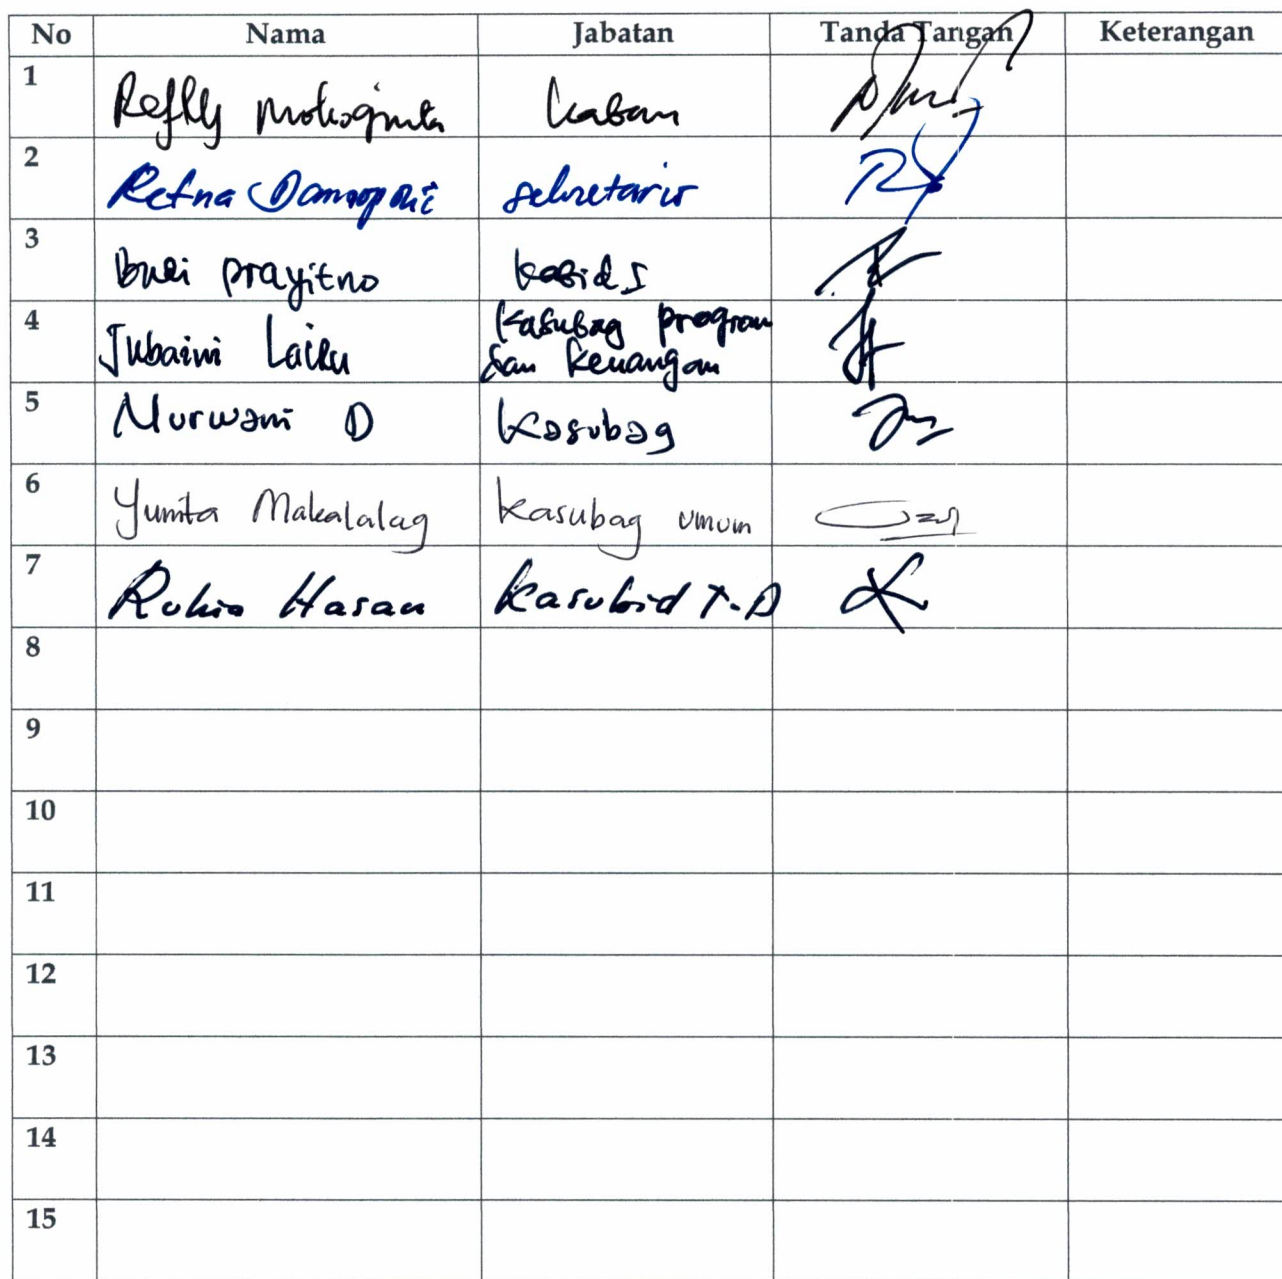 No Nama Jabatan Tanda Tangan Keterangan
1 Refly Mokoginta Kaban
2 Retna sekretaris
3 Budi prayitno Kabid I
4 Jubaini Kasubag program
dan keuangan
5 Nurwani D Kasubag
6 Yunita Makalalag Kasubag umum
7 Rukia Hasan Kasubid
8
9
10
11
12
13
14
15